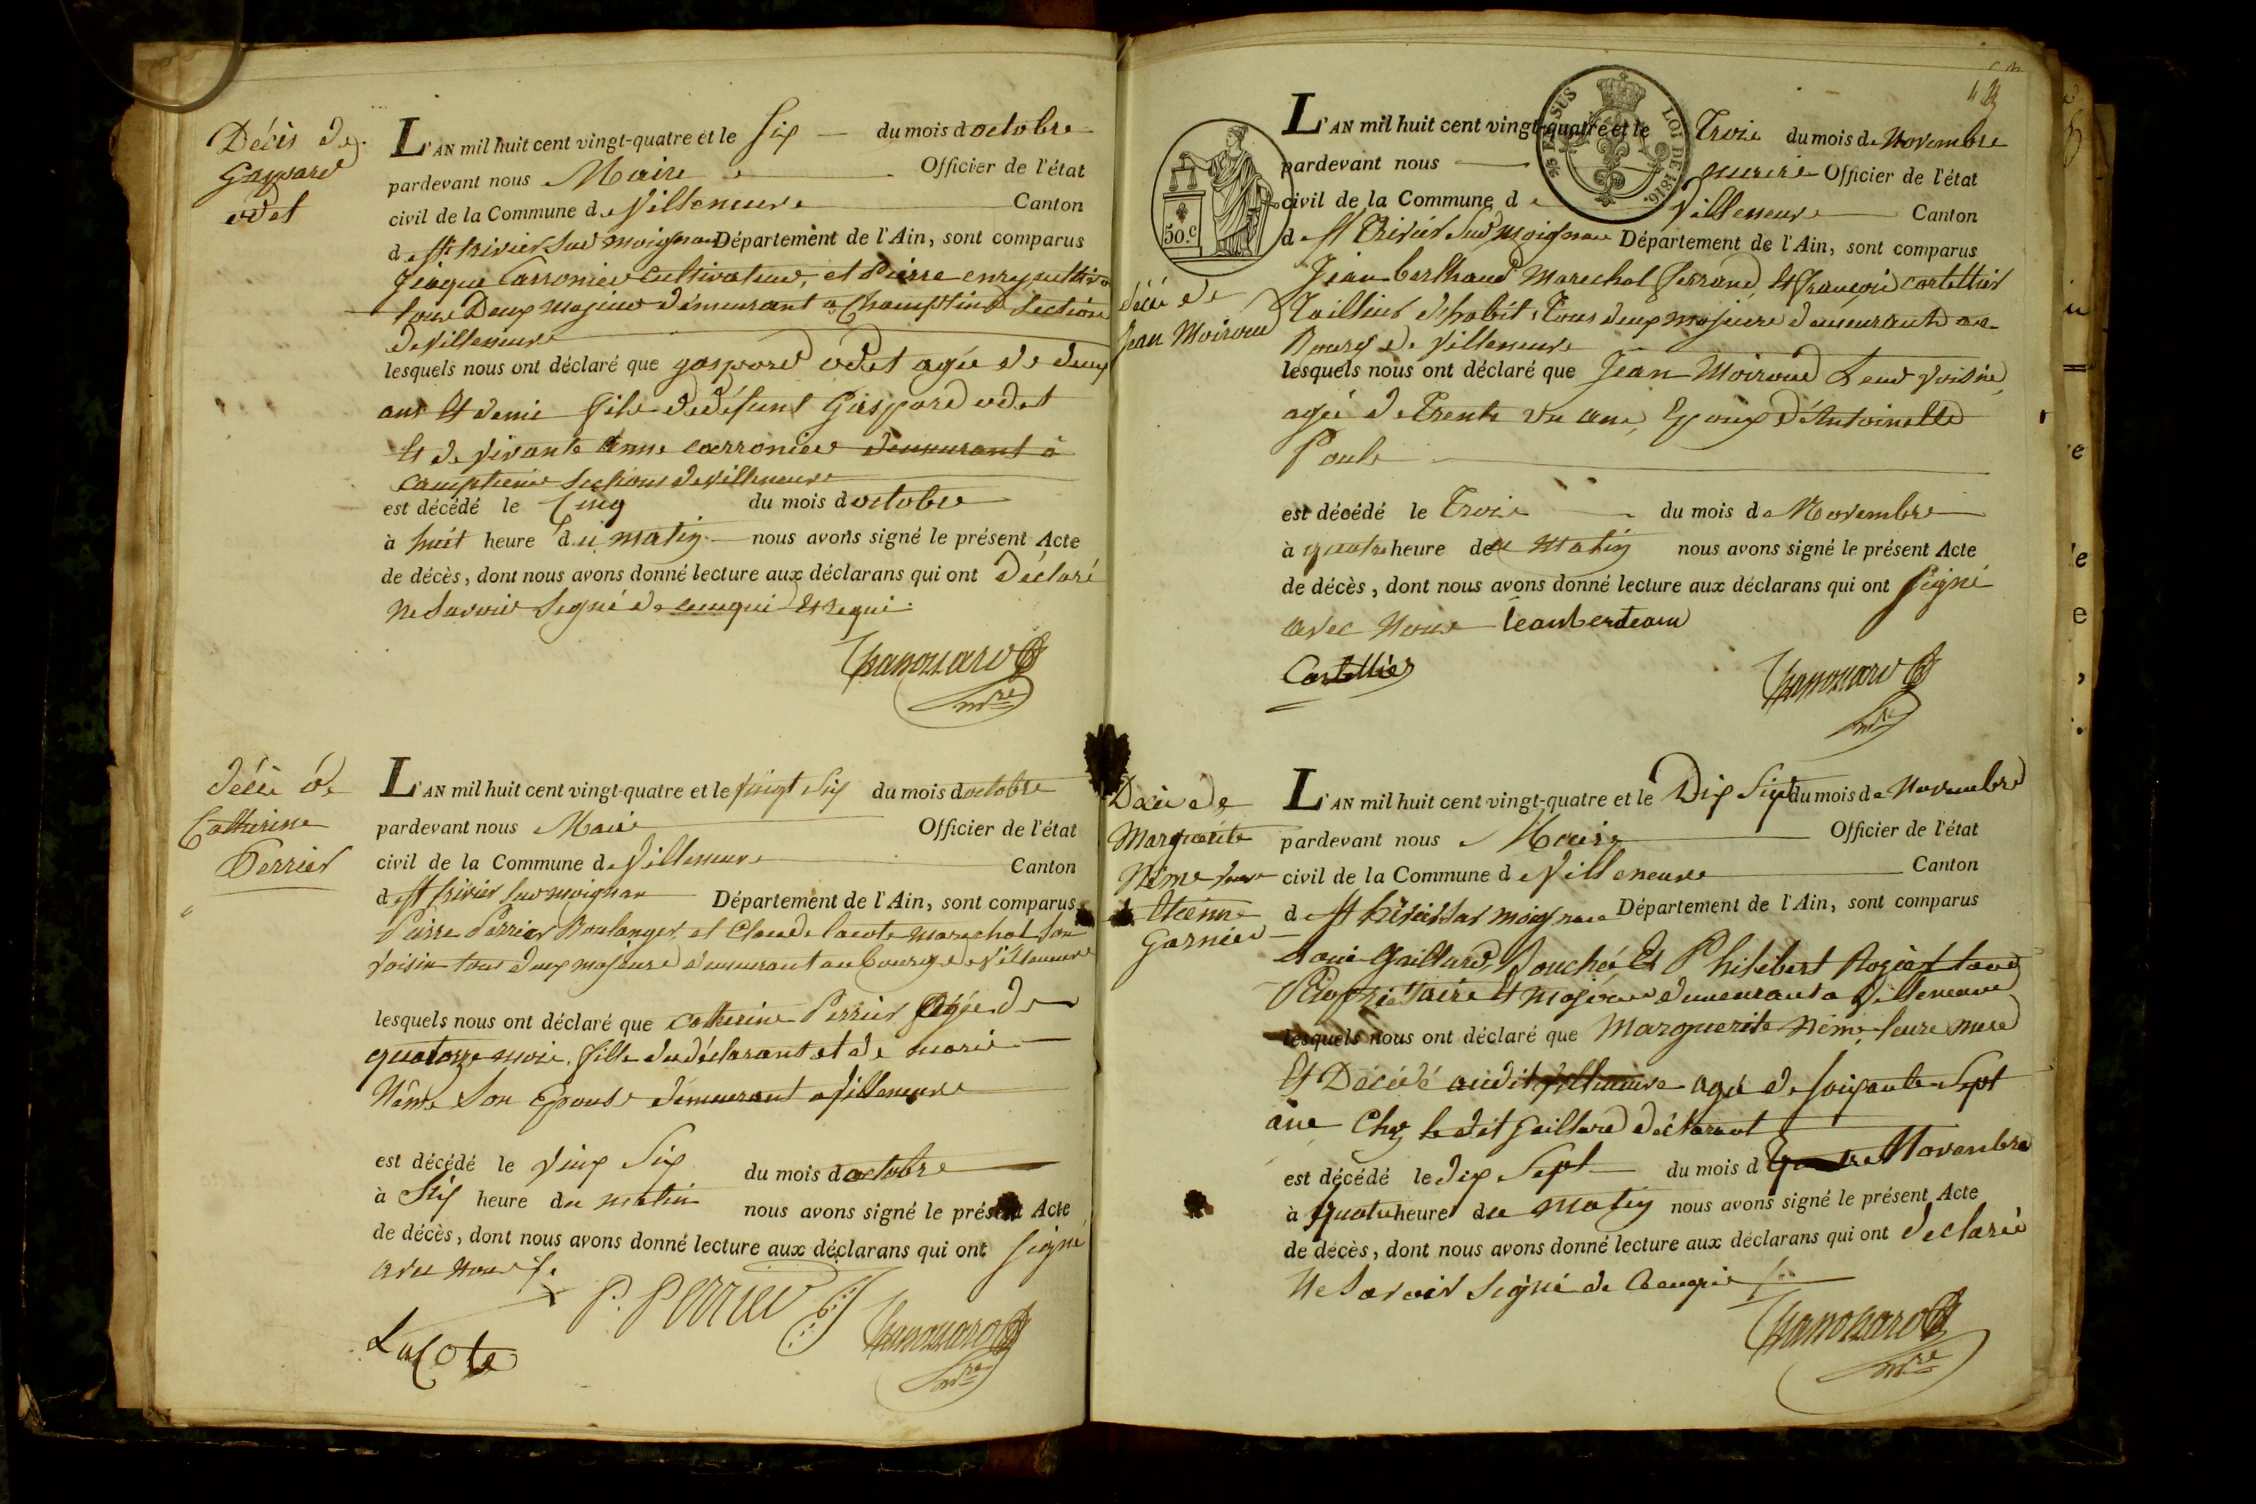 Décès de
Gaspard
odet
L'AN mil huit cent vingt-quatre et le Six du mois doctobre
pardevant nous Maire Officier de l'état
civil de la Commune de Villeneuve Canton
d St trivier Sur moignan Département de l'Ain, sont comparus
Jaque Carronier Cultivateur, et Pierre enry cultiva
tous Deux majeur demeurant a Section
de Villeneuve
lesquels nous ont déclaré que gaspard odet agée de deux
ans Et demie fils de défunt Gaspard odet
Et de vivante anne carronier demeurant à
Sections de Villeneuve
est décédé le Cinq du mois doctobre
à huit heure du matin nous avons signé le présent Acte
de décès, dont nous avons donné lecture aux déclarans qui ont Déclaré
Ne Savoir Signé de Requi
mre
décè de
Catherine
Perrier
L'AN mil huit cent vingt-quatre et le vingt Six du mois doctobre
pardevant nous Maire Officier de l'état
civil de la Commune de Villeneuve Canton
d St trivier Sur moignan Département de l'Ain, sont comparus
Pierre Perrier Boulanger et Claude lacote marechal Son
voisin tous deux majeure demeurant au bourg de Villeneuve
lesquels nous ont déclaré que catherine Perrier agée de
quatorze mois fille du déclarant et de marie
Nême Son Epouse demeurant a Villeneuve
est décédé le vinx Six du mois doctobre
à Six heure du matin nous avons signé le présent Acte
de décès, dont nous avons donné lecture aux déclarans qui ont Signé
avec nous
P. Perrier
Lacote
mre
L'AN mil huit cent vingt-quatre et le Trois du mois de Novembre
pardevant nous maire Officier de l'état
civil de la Commune de Villeneuve Canton
d St Trivier Sur moignan Département de l'Ain, sont comparus
LOI DE 1816.
50.c
décè de
Jean Moiroud
Jean berthaud Marechal ferrand Et françois cortellier
Taillieur d'habit, Tous deux majeure demeurants au
Bourg de Villeneuve
lesquels nous ont déclaré que Jean Moiroud Leur voisin,
agée de Trente un ans, Epoux d'Antoinette
Poule
est décédé le Trois du mois de Novembre
à quatre heure de matin nous avons signé le présent Acte
de décès, dont nous avons donné lecture aux déclarans qui ont Signé
avec Nous
Cortellier
mre
Décè de
Marguerite
Nême
Etienne
Garnier
L'AN mil huit cent vingt-quatre et le Dix Sept du mois de Novembre
pardevant nous Maire Officier de l'état
civil de la Commune de Villeneuve Canton
d St trivier Sur moignan Département de l'Ain, sont comparus
Gaillard, Et Philibert
Propriétaire Et majeure demeurant a Villeneuve
lesquels nous ont déclaré que Marguerite Nême, leure mere
Et Décédé audit Villeneuve agé de Soixante Sept
ans Chez le dit Gaillard déclarant
est décédé le dix Sept du mois d Novembre
à quatre heure du matin nous avons signé le présent Acte
de décès, dont nous avons donné lecture aux déclarans qui ont declaré
Ne Savoir Signé de
mre